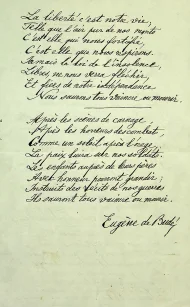 La liberté c'est notre vie,
Telle que l'air pur de nos monts
C'est elle qui nous fortifie,
C'est elle que nous respirons.
Jamais la loi de l'insolence
Libres, ne nous verra fléchir,
Et fiers de notre indépendance
Nous saurons tous vaincre ou mourir.
Après les scènes de carnage,
Après les horreurs des combats,
Comme un soleil après l'orage
La paix luira sur nos soldats.
Les enfants auprès de leurs pères
Avec honneur pourront grandir;
Instruits des récits de nos guerres
Ils sauront tous vaincre ou mourir.
Eugène de